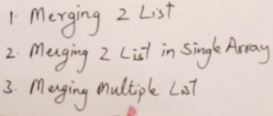 1. Merging 2 List
2. Merging 2 List in Single Array
3. Merging Multiple List